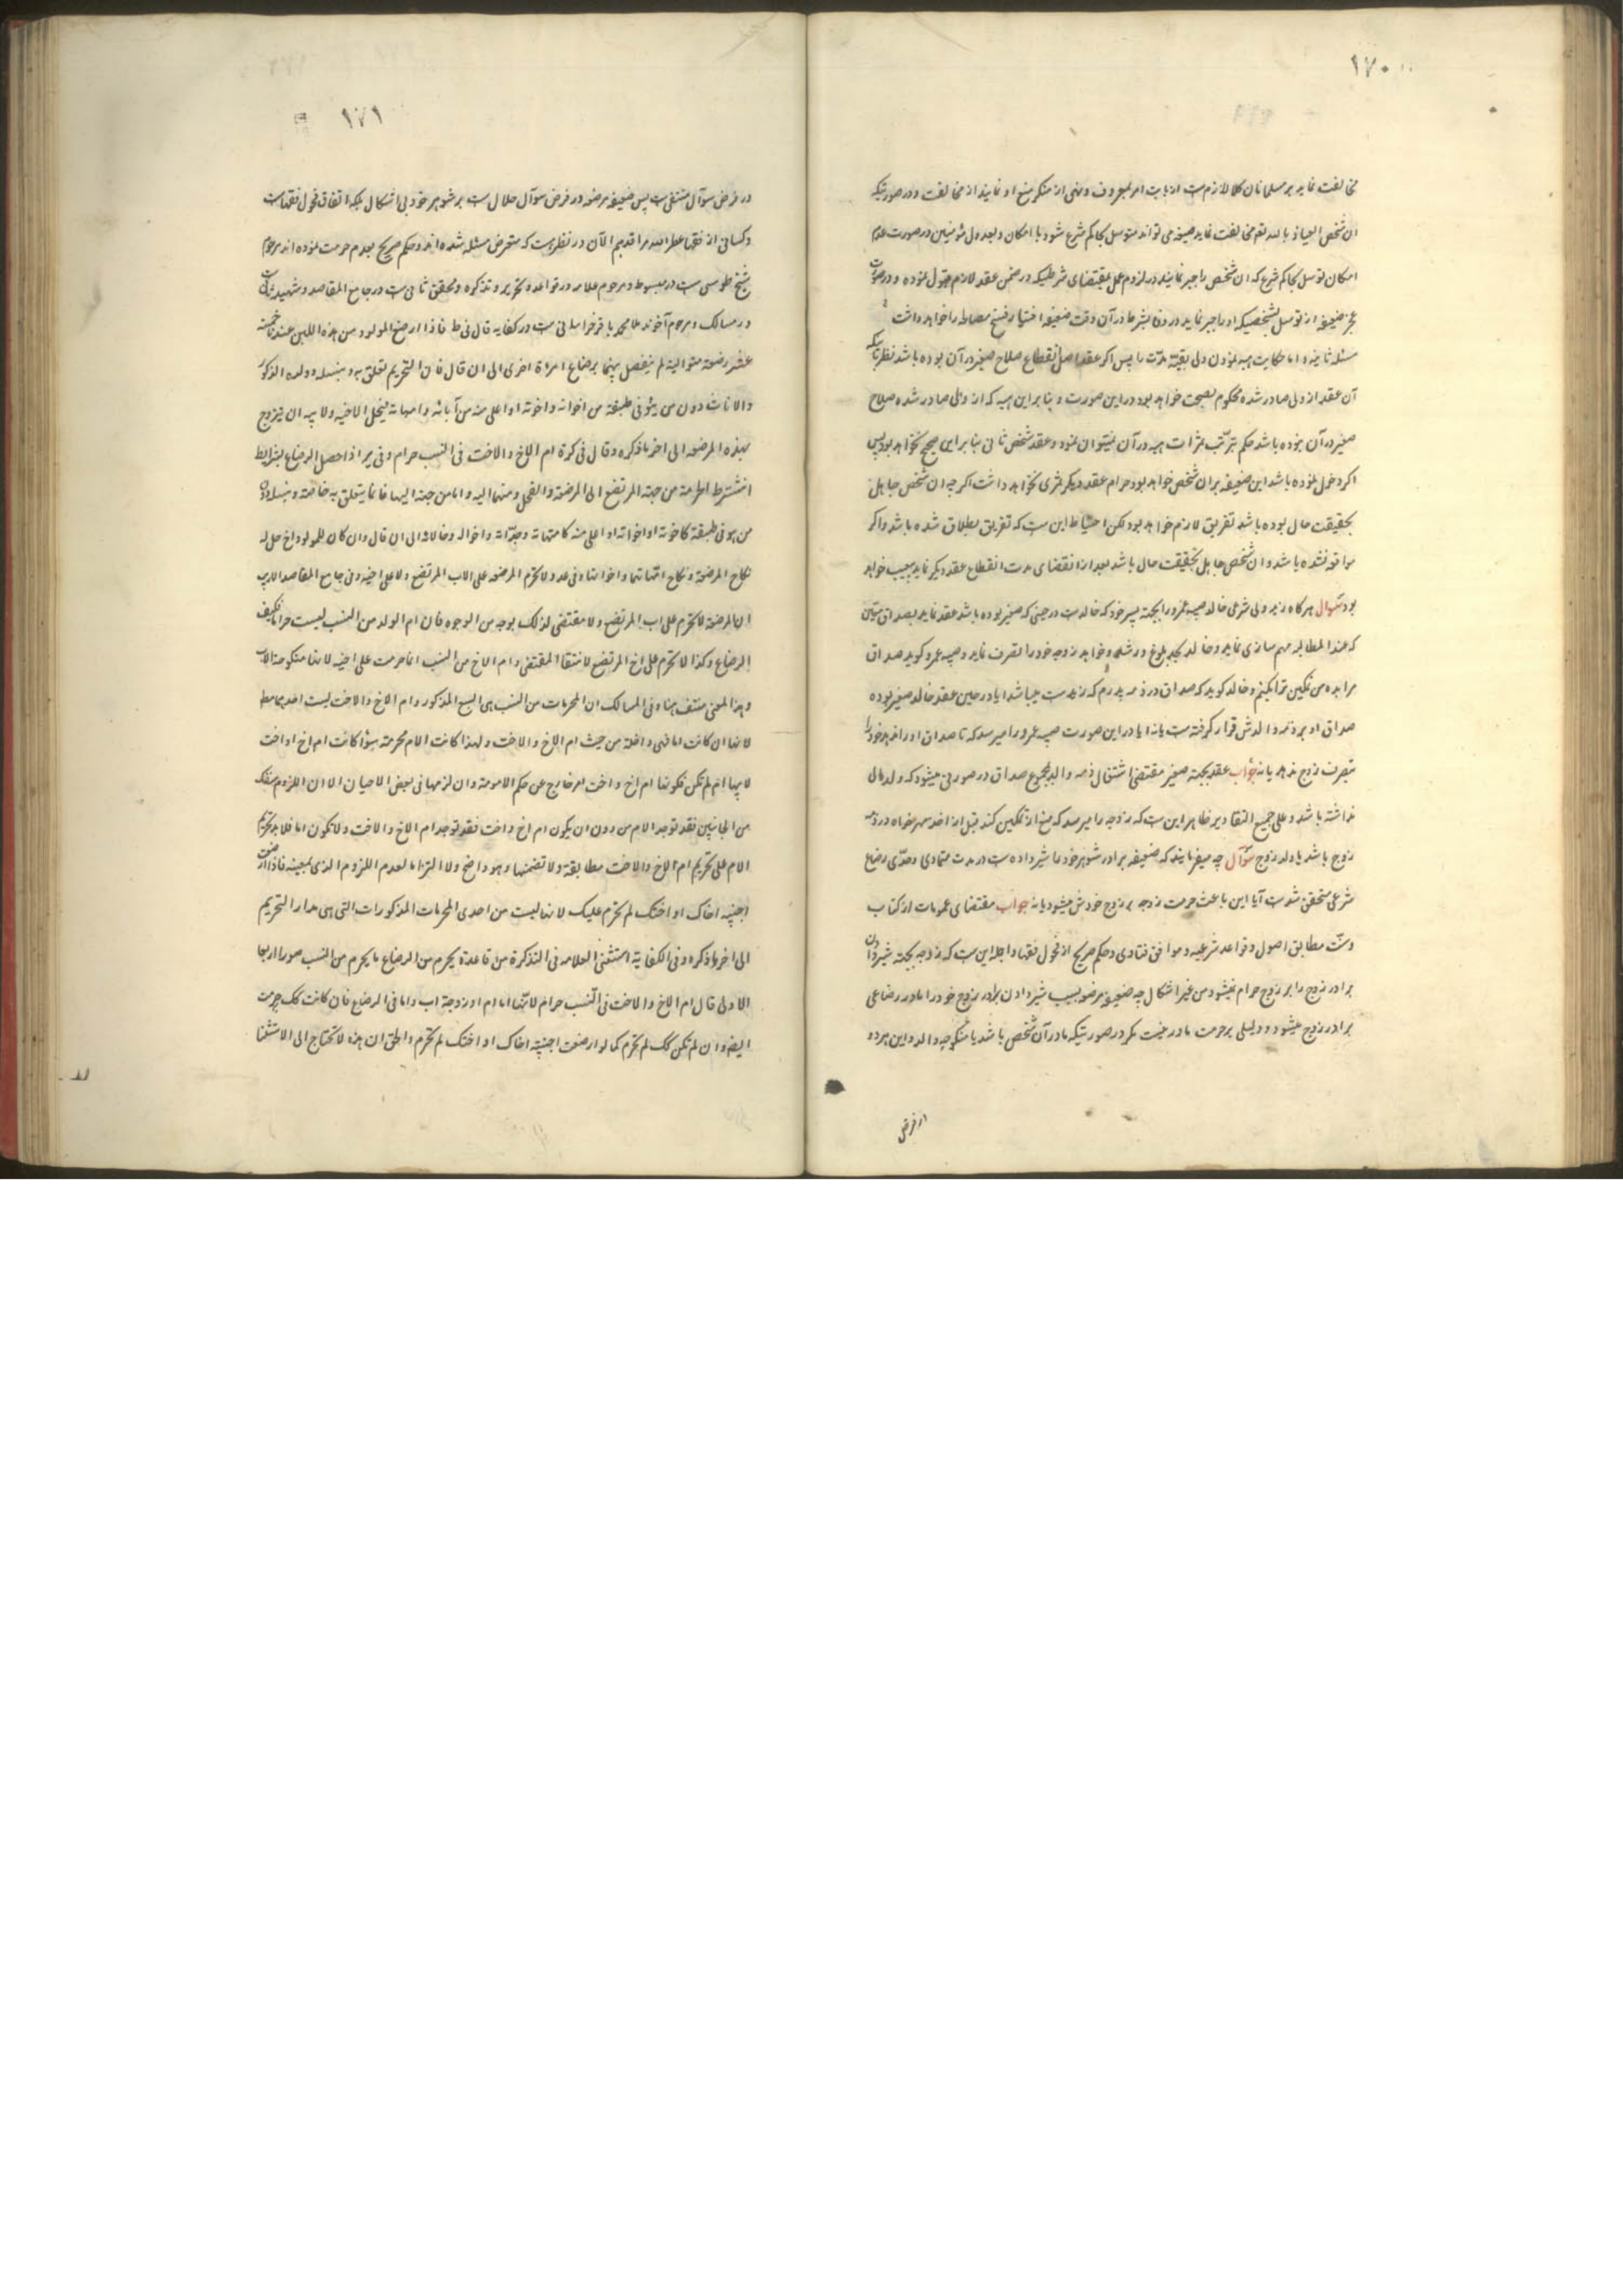 ١٧٠
مخالفت نماید بر مسلمانان کلا لازمست از بابت امر بمعروف و نهی از منکر منع او نمایند از مخالفت و در صورتیکه
ان شخص العیاذ بالله تعم مخالفت نماید ضعیفه می تواند متوسل بحاکم شرع شود با امکان و بعدول مؤمنین در صورت عدم
امکان توسل بحاکم شرع که ان شخص را جبر نمایند در لزوم عمل بمقتضای شرطیکه در ضمن عقد لازم قبول نموده و در صورت
عجز ضعیفه از توسل بشخصیکه او را جبر نماید در وفا بشرط در آن وقت ضعیفه اختیار فسخ مصالحه را خواهد داشت
مسئله ثانیه و اما حکایت هبه نمودن ولی بقیّه مدّت را پس اکر عقد اصل انقطاع صلاح صغیر در آن بوده باشد نظر باینکه
آن عقد از ولی صادر شده محکوم بصحت خواهد بود در این صورت و بنا بر این هبه که از ولی صادر شده صلاح
صغیر در آن نبوده باشد حکم بترتّب ثمرات هبه در آن نمیتوان نمود و عقد شخص ثانی بنا بر این صحیح نخواهد بود پس
اکر دخول نموده باشد این ضعیفه بر ان شخص خواهد بود حرام عقد دیکر ثمری نخواهد داشت اکر چه ان شخص جاهل
بحقیقت حال بوده باشد تفریق لازم خواهد بود لکن احتیاط این ست که تفریق بطلاق شده باشد و اکر
مواقعه نشده باشد و ان شخص جاهل بحقیقت حال باشد بعد از انقضای مدت انقطاع عقد دیکر نماید بیعیب خواهد
بود سؤال هرکاه زید ولی شرعی خالد صبیه عمرو را بجهة پسر خود که خالدست در حینی که صغیر بوده باشد عقد نماید بصداق معین
که عند المطالبه مهم سازی نماید و خالد بحد بلوغ و رشد و خواهد زوجه خود را تصرف نماید و صبیه عمرو کوید صداق
مرا بده من تمکین ترا بکنم و خالد کوید که صداق در ذمه پدرم که زیدست میباشد ایا در حین عقد خالد صغیر بوده
صداق او بر ذمه والدش قرار کرفته ست یا نه ایا در این صورت صبیه عمرو را میرسد که تا صداق او را ندهد خود را
بتصرف زوج ندهد یا نه جواب عقد بجهة صغیر مقتضی اشتغال ذمه والد بمجموع صداق در صورتی میشود که ولد مال
نداشته باشد و علی جمیع التقادیر ظاهر این ست که زوجه را میرسد که منع از تمکین کند قبل از اخذ مهر خواه در ذمه
زوج باشد یا والد زوج سؤال چه میفرمایند که ضعیفه برادر شوهر خود را شیر داده ست در مدت متمادی و حدّی رضاع
شرعی متحقق شدست آیا این باعث حرمت زوجه بر زوج خودش میشود یا نه جواب مقتضای عمومات از کتاب
و سنّت مطابق اصول و قواعد شرعیه و موافق فتاوی و حکم صریح از فحول فقها و اجلا این ست که زوجه بجهة شیر دادن
برادر زوج را بر زوج حرام نمیشود من غیر اشکال چه ضعیفه مرضعه بسبب شیر دادن برادر زوج خود را مادر رضاعی
برادر زوج میشود و دلیلی بر حرمت مادر نیست مکر در صورتیکه مادر آن شخص باشد یا منکوحه والد و این هر دو
در فرض
١٧١
در فرض سوآل منتفی ست پس ضعیفه مرضعه در فرض سوآل حلال ست بر شوهر خود بی اشکال بلکه اتفاق فحول فقهاست
و کسانی از فقها عطر الله مراقدهم الآن در نظرست که متعرض مسئله شده اند و حکم صریح بعدم حرمت نموده اند مرحوم
شیخ طوسی ست در مبسوط و مرحوم علامه در قواعد و تحریر و تذکره و محقق ثانی ست در جامع المقاصد و شهید ثانی ست
در مسالک و مرحوم آخوند ملا محمد باقر خراسانی ست در کفایه قال فی ط فاذا ارضع المولود من هذه اللبن عندنا خمسة
عشر رضعة متوالیة لم یفصل بینهما برضاع امراة اخری الی ان قال فان التحریم تعلق به و بنسله و ولده الذکور
والاناث دون من هو فی طبقته من اخوانه و اخوته او اعلی منه من آبائه و امهاته فیحل لاخیه و لابیه ان یتزوج
بهذه المرضعه الی اخر ما ذکره و قال فی کرة ام الاخ والاخت فی النسب حرام و فی یر اذا حصل الرضاع بشرایط
انتشرط الحرمة من جهة المرتضع الی المرضعة والفحل و منهما الیه و اما من جهته الیها فانما یتعلق به خاصة و بنسله دون
من هو فی طبقته کاخوته او اخواته او اعلی منه کامهاته و جدّاته و اخواله و خالاته الی ان قال و ان کان للمولود اخ حل له
نکاح المرضعة و نکاح امهاتها و اخواتها و فی عد و لا تحرم المرضعه علی الاب المرتضع و لا علی اخیه و فی جامع المقاصد لا ریب
ان المرضعة لا تحرم علی اب المرتضع و لا مقتضی لذلک بوجه من الوجوه فان ام الولد من النسب لیست حراما فکیف
الرضاع و کذا لا تحرم علی اخ المرتضع لانتفا المقتضی و ام الاخ من النسب انما حرمت علی اخیه لانها منکوحة الاب
و هذا المعنی منتف هنا و فی المسالک ان المحرمات من النسب هی السبع المذکور و ام الاخ والاخت لیست احدیها مط
لانها ان کانت اما فهی داخلة من حیث ام الاخ والاخت و لهذا کانت الام محرمة سواء کانت ام اخ او اخت
لابیها ام لم تکن فکونها ام اخ و اخت امر خارج عن حکم الامومة و ان لزمها فی بعض الاحیان الا ان اللزوم منفک
من الجانبین فقد توجد الام من دون ان یکون ام اخ و اخت فقد توجد ام الاخ والاخت ولا تکون اما فلا یدل تحریم
الام علی تحریم ام الاخ والاخت مطابقة و لا تضمنها و هو واضح و لا التزاما لعدم اللزوم الذی بمعینه فاذا ارضعت
اجنبیه اخاک او اختک لم تحرم علیک لانها لیست من احدی المحرمات المذکورات التی هی مدار التحریم
الی اخر ما ذکره و فی الکفایة استثنی العلامه فی التذکرة من قاعدة یحرم من الرضاع ما یحرم من النسب صورا اربعا
الاولی قال ام الاخ والاخت فی النسب حرام لانّها اما ام او زوجة اب و اما فی الرضاع فان کانت کک حرمت
ایضم و ان لم تکن کک لم تحرم کما لو ارضعت اجنبیّة اخاک او اختک لم تحرم والحق ان هذه لا تحتاج الی الاستثنا